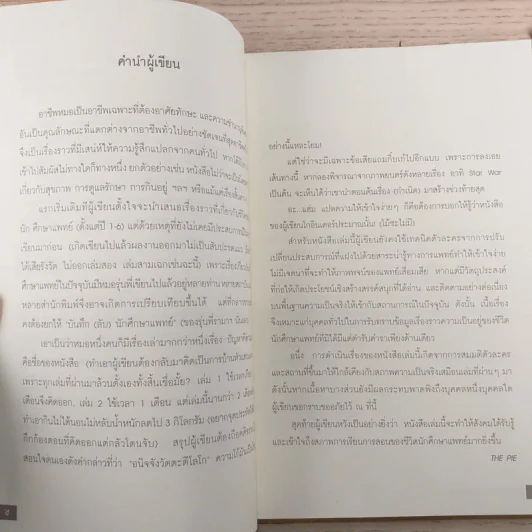 คำนำผู้เขียน
อาชีพหมอเป็นอาชีพเฉพาะที่ต้องอาศัยทักษะ และความชำนาญ
อันเป็นคุณลักษณะที่แตกต่างจากอาชีพทั่วไปอย่างชัดเจนที่สุด
จึงเป็นเรื่องราวที่มีเสน่ห์ให้ความรู้สึกแปลกจากคนทั่วไป หาก
เข้าไปสัมผัสไม่ทางใดก็ทางหนึ่ง ยกตัวอย่างเช่น หนังสือไม่ว่าจะเป็น
เกี่ยวกับสุขภาพ การดูแลรักษา การกินอยู่ ฯลฯ หรือแม้แต่เรื่องสั้น
แรกเริ่มเดิมทีผู้เขียนตั้งใจจะนำเสนอเรื่องราวที่เกี่ยวกับชีวิต
นักศึกษาแพทย์ (ตั้งแต่ปี 1-6) แต่ด้วยเหตุที่ยังไม่เคยมีประสบการณ์
เขียนมาก่อน (เกิดเขียนไปแล้วผลงานออกมาไม่เป็นสับปะรด
ได้เสียรังวัด ไม่ออกเล่มสอง เล่มสามเฉกเช่นฉะนี้) เพราะเรื่องเกี่ยวกับ
ศึกษาแพทย์ในปัจจุบันมีหมอรุ่นพี่เขียนไปแล้วอยู่หลายท่าน หลายสำนัก
หลายสำนักพิมพ์จึงอาจเกิดการเปรียบเทียบขึ้นได้ แต่ที่
คงต้องยกให้ "บันทึก (ลับ) นักศึกษาแพทย์" (ของรุ่นพี่รามาฯ
เอาเป็นว่าหมอหนึ่งคนก็มีเรื่องเล่ามากกว่าหนึ่งเรื่อง ปัญหา
คือชื่อของหนังสือ (ทำเอาผู้เขียนต้องกลับมาคิดเป็นการบ้าน
เพราะทุกเล่มที่ผ่านมาล้วนตั้งเองทั้งสิ้นเชื่อมั้ย? เล่ม 1 ใช้เวลา
เดือนจึงคิดออก เล่ม 2 ใช้เวลา 1 เดือน แต่เล่มนี้นานกว่า 2 เดือน
ทำเอากินไม่ได้นอนไม่หลับน้ำหนักลดไป 3 กิโลกรัม
กึกก้องตอนที่คิดออกแต่กลัวโดนจับ) สรุปผู้เขียนต้อง
สอนใจตนเองดังคำกล่าวที่ว่า "อนิจจังวัตตะตีโลโก"
อย่างนี้แหละโยม!
แต่ใช่ว่าจะมีเฉพาะข้อเสียแถมกึ๋นเก๋ไปอีกแบบ เพราะการลงเอย
เส้นทางนี้ หากลองพิจารณาจากภาพยนตร์ดังหลายเรื่อง อาทิ Star War
เป็นต้น จะเห็นได้ว่าเขานำตอนต้นเรื่อง (กำเนิด) มาสร้างช่วงท้ายสุด
อะ..แฮ่ม แปลความให้เข้าใจง่ายๆ ก็คือต้องการบอกให้รู้ว่าหนังสือ
ของผู้เขียนใกล้อินเตอร์ประมาณนั้น! (โม้ซะไม่มี)
สำหรับหนังสือเล่มนี้ผู้เขียนยังคงใช้เทคนิคตัวละครจากการปรับ
เปลี่ยนประสบการณ์ที่แฝงไปด้วยสาระน่ารู้ทางการแพทย์ทำให้เข้าใจง่าย
ไม่มีเจตนาที่จะทำให้ภาพพจน์ของแพทย์เสื่อมเสีย หากแต่มีวัตถุประสงค์
ที่ก่อให้เกิดประโยชน์เชิงสร้างสรรค์สนุกที่ได้อ่าน และติดตามอย่างต่อเนื่อง
บนพื้นฐานความเป็นจริงให้เข้ากับสถานการณ์ในปัจจุบัน ดังนั้น เนื้อเรื่อง
จึงเหมาะแก่บุคคลทั่วไปในการรับทราบข้อมูลเรื่องราวความเป็นอยู่ของชีวิต
นักศึกษาแพทย์ที่มิได้มีแต่ตำรับตำราเพียงด้านเดียว
อนึ่ง การดำเนินเรื่องของหนังสือเล่มนี้เกิดจากการสมมติตัวละคร
และสถานที่ขึ้นมาให้ใกล้เคียงกับสภาพความเป็นจริงเสมือนเล่มที่ผ่านๆ มา
ดังนั้นหากเนื้อหาบางส่วนยังมีผลกระทบพาดพิงถึงบุคคลหนึ่งบุคคลใด
ผู้เขียนขอกราบขออภัยไว้ ณ ที่นี้
สุดท้ายผู้เขียนหวังเป็นอย่างยิ่งว่า หนังสือเล่มนี้จะทำให้สังคมได้รับรู้
และเข้าใจถึงสภาพการเรียนการสอนของชีวิตนักศึกษาแพทย์มากยิ่งขึ้น
THE PIE